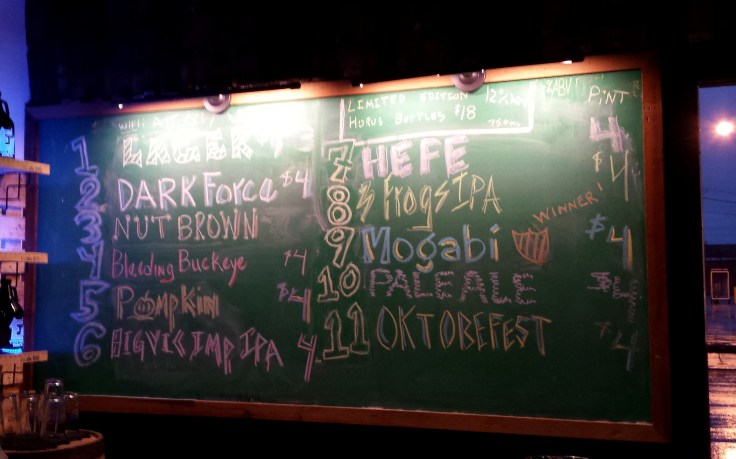 LIMITED EDITION 12%
HORUS BOTTLES $18
%ABV
PiNT
WiFi
1 LAGER
2 DARK Force $4
3 NUT BROWN
4 Bleeding Buckeye $4
5 POMPKIN $4
6 BIG VIC IMP. IPA 4
7 HEFE 4
8 3 FrogS IPA $4
9 Mogabi WINNER! $4
10 PALE ALE
11 OKTOBEFEST $4